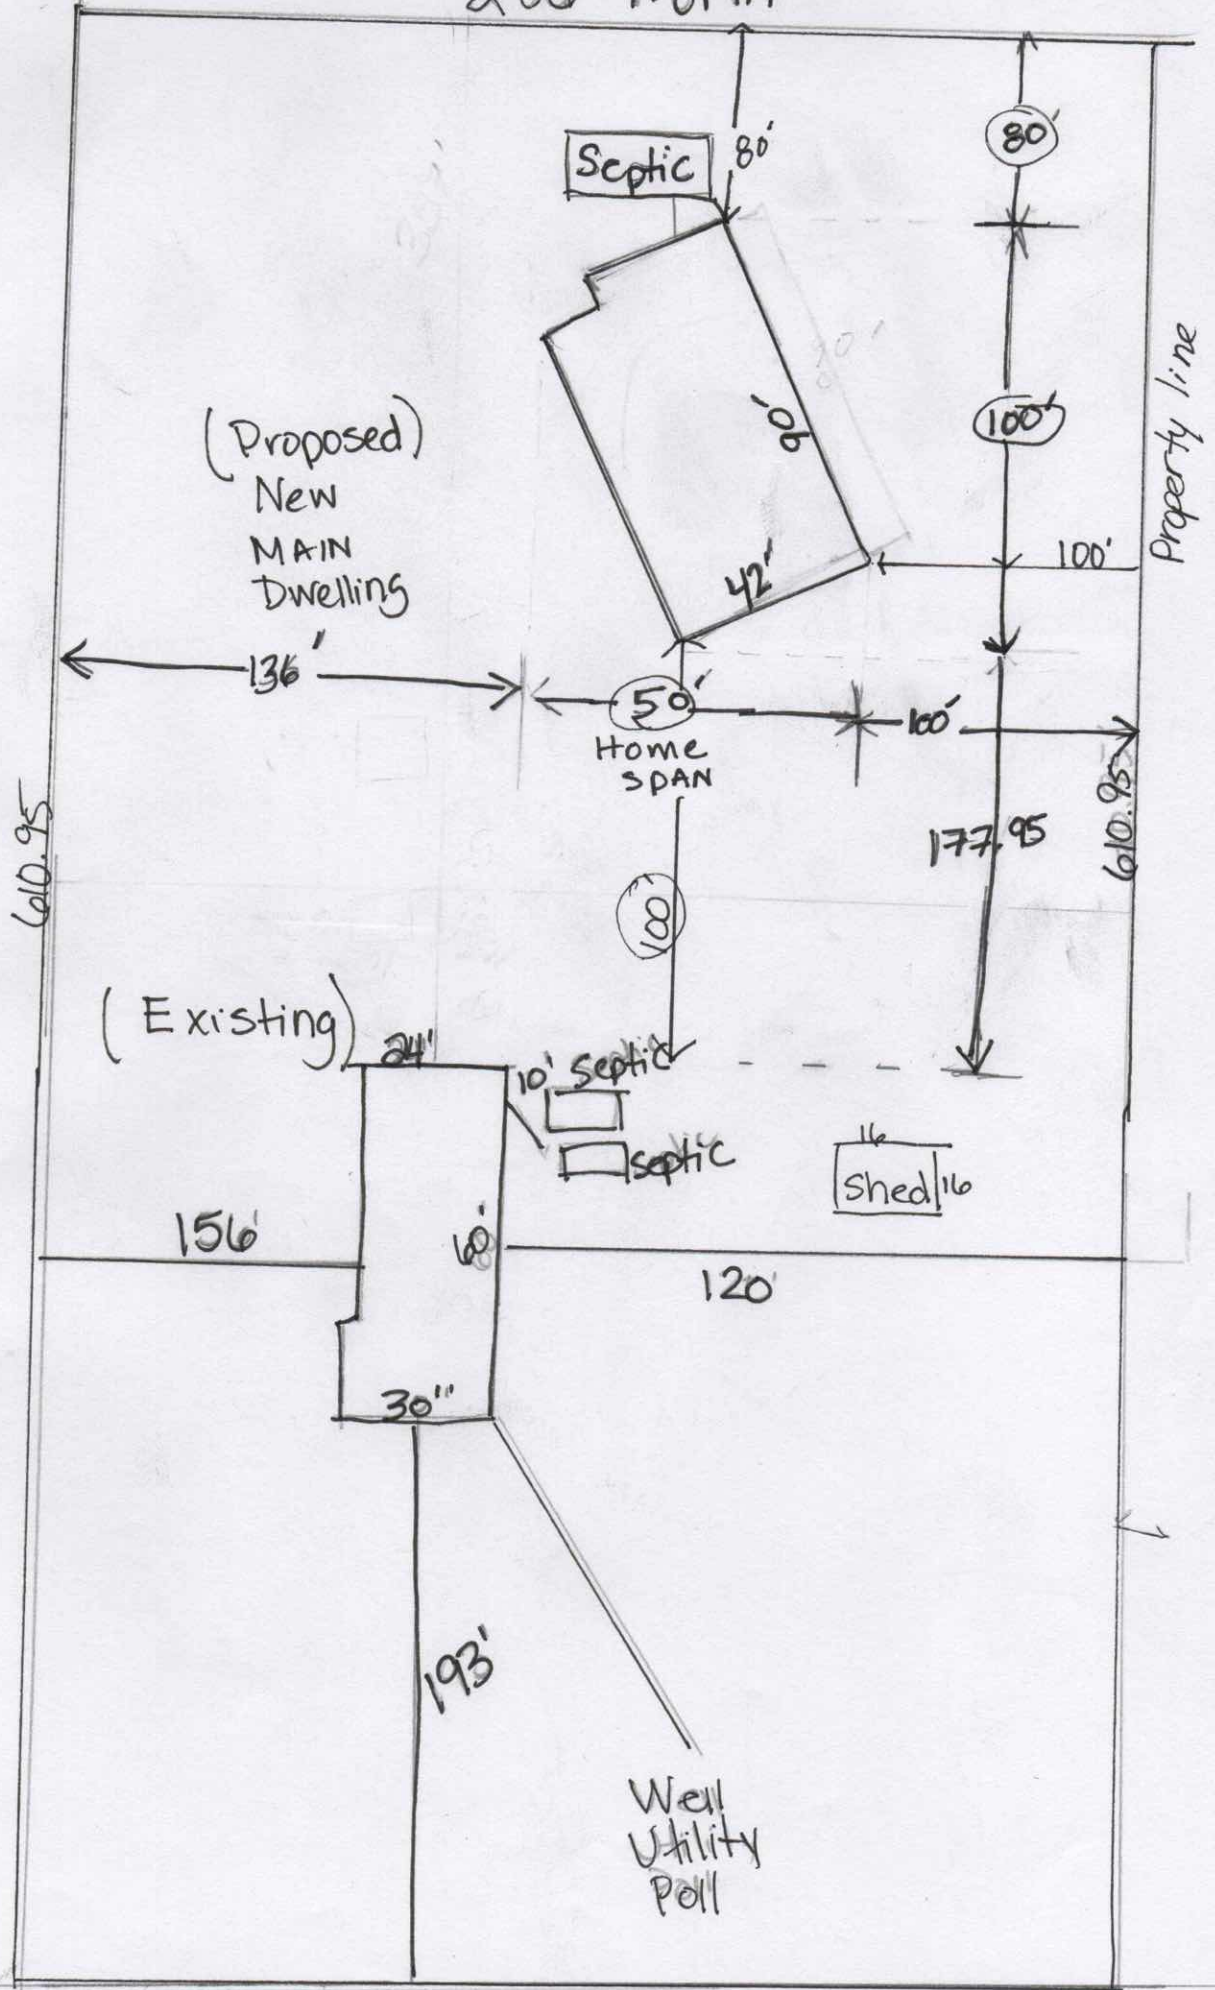 North
80'
80'
Septic
90'
100'
Property line
(Proposed)
New
MAIN
Dwelling
42'
100'
136'
50'
100'
Home
SPAN
177.95
610.95
610.95
100'
(Existing)
24'
10' Septic
septic
16
Shed 16
156'
60'
120'
30'"
193'
Well
Utility
Poll